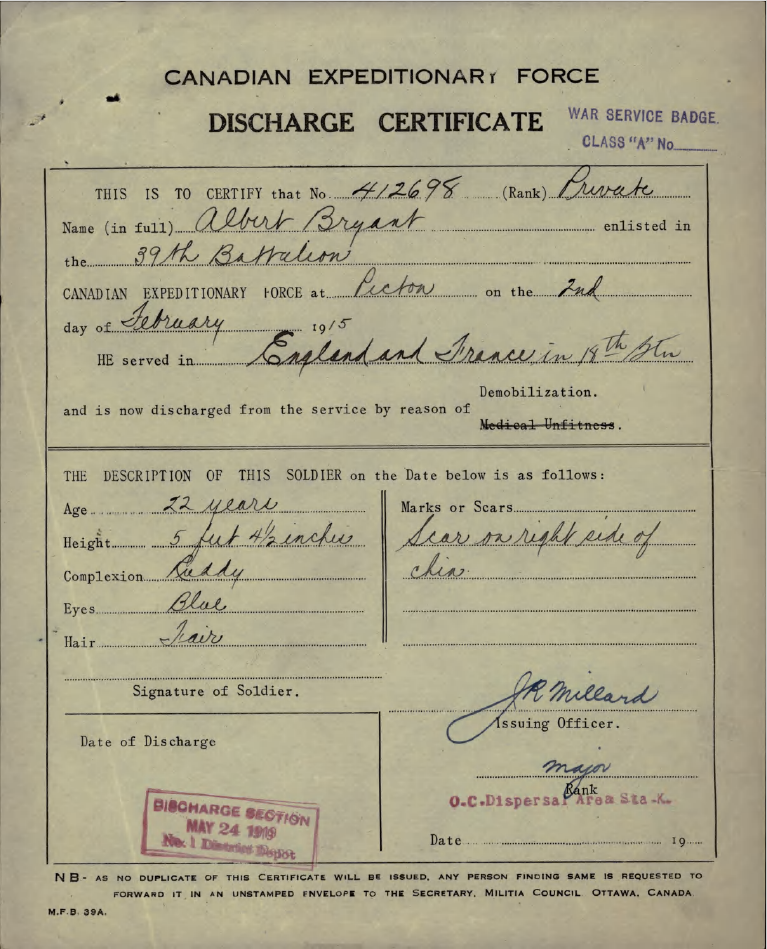 CANADIAN EXPEDITIONARY FORCE
DISCHARGE CERTIFICATE
WAR SERVICE BADGE.
CLASS "A" No
THIS IS TO CERTIFY that No. 412698 (Rank) Private
Name (in full) Albert Bryant enlisted in
the 39th Battalion
CANADIAN EXPEDITIONARY FORCE at Picton on the 2nd
day of February 1915
HE served in England and France in 18th Btn
Demobilization.
and is now discharged from the service by reason of
Medical Unfitness.
THE DESCRIPTION OF THIS SOLDIER on the Date below is as follows:
Age 22 years
Height 5 feet 4½ inches
Complexion Ruddy
Eyes Blue
Hair Fair
Marks or Scars
Scar on right side of
chin.
Signature of Soldier.
JR Millard
Issuing Officer.
Date of Discharge
Major
Rank
O.C. Dispersal Area Sta-K.
DISCHARGE SECTION
MAY 24 1919
No. 1 District Depot
Date 19
NB- AS NO DUPLICATE OF THIS CERTIFICATE WILL BE ISSUED, ANY PERSON FINDING SAME IS REQUESTED TO
FORWARD IT IN AN UNSTAMPED ENVELOPE TO THE SECRETARY, MILITIA COUNCIL OTTAWA, CANADA
M.F.B. 39A.